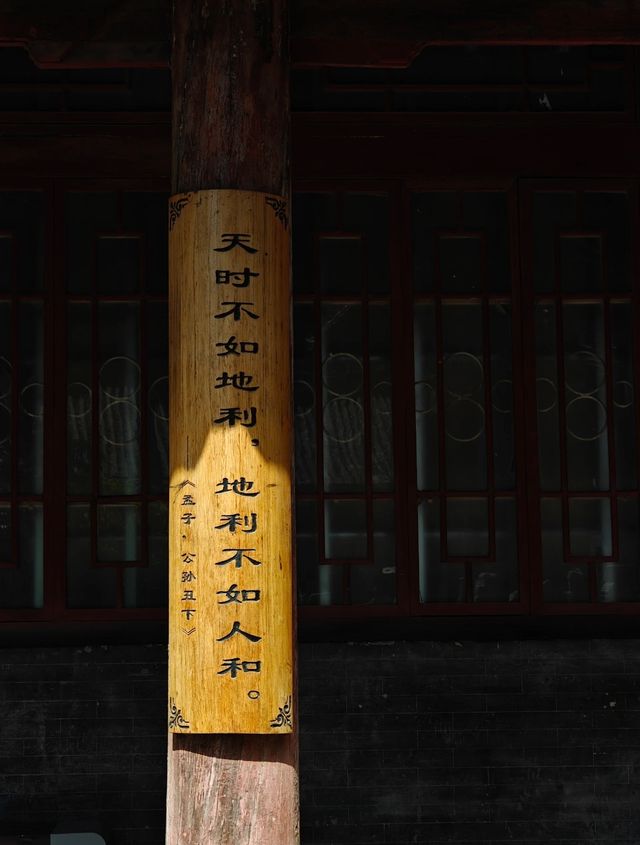 天时不如地利，地利不如人和。
《孟子·公孙丑下》